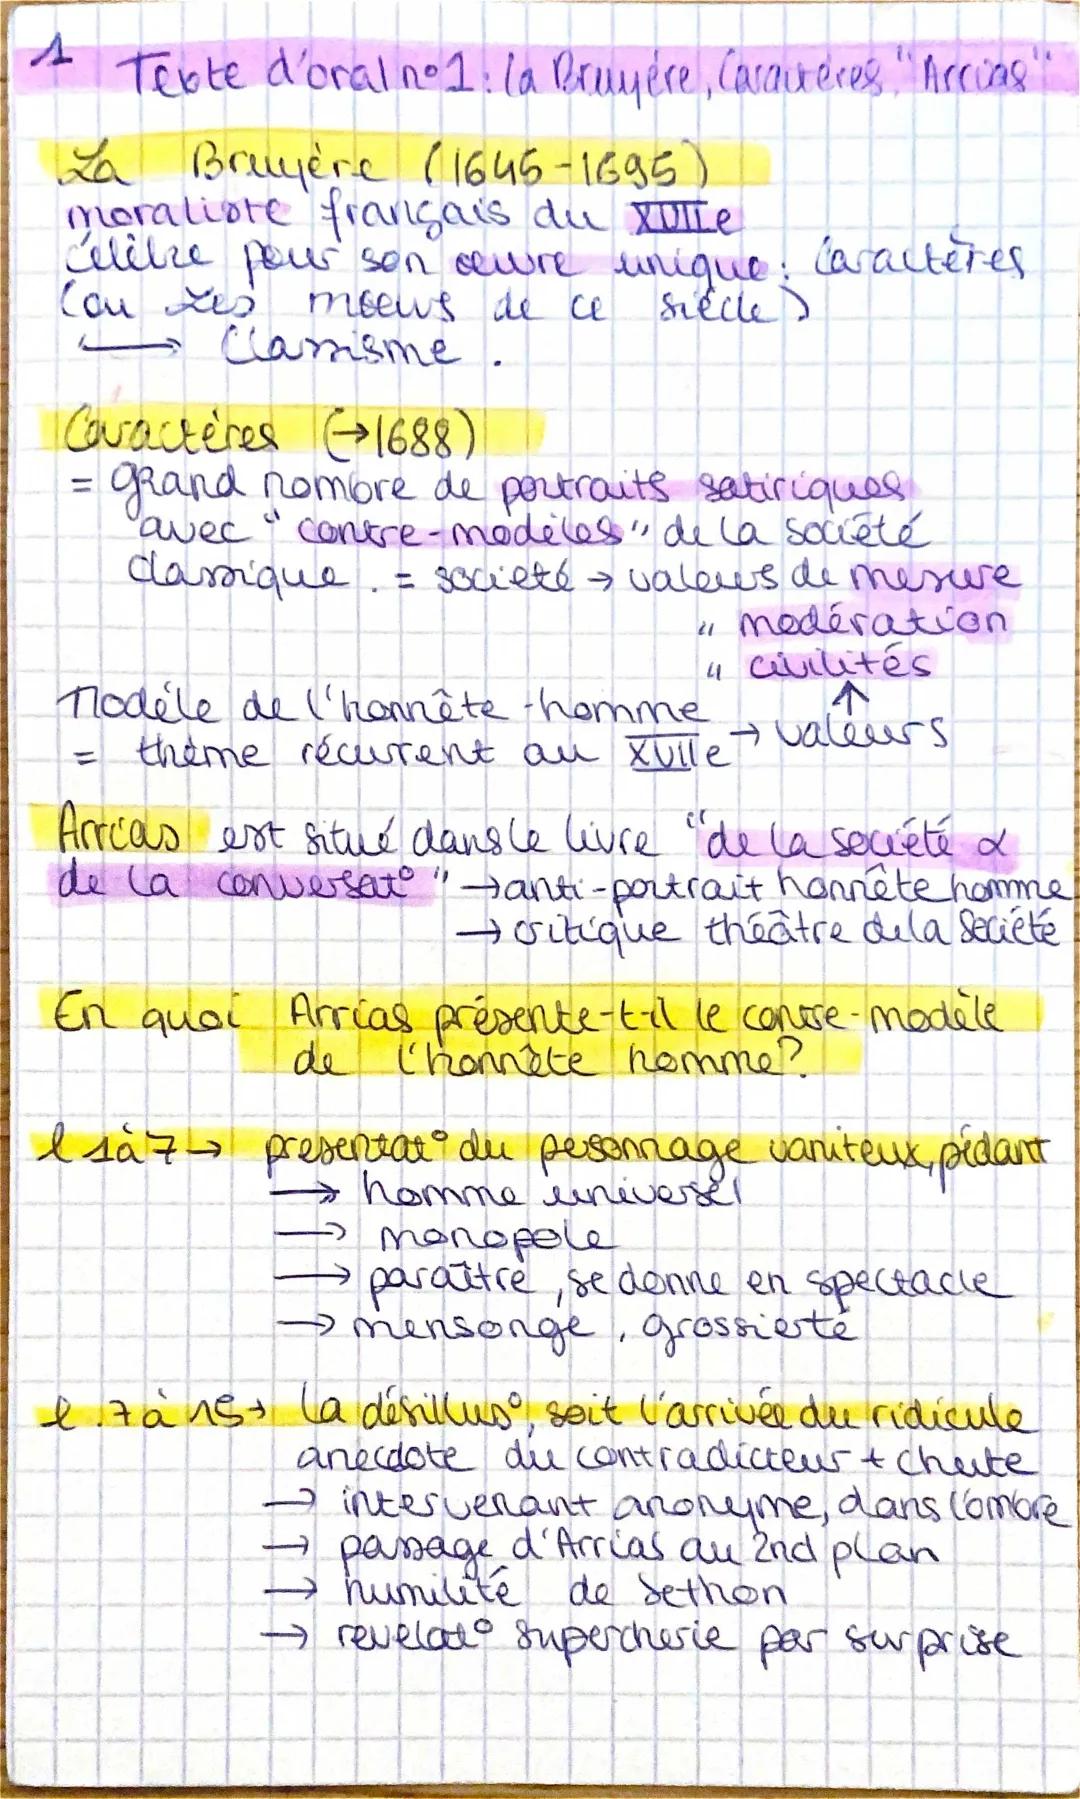 1 Texte d'oral n°1 : la Bruyère, Caractères, "Arrias"
La Bruyère (1645-1695)
moraliste français du XVIIe
célèbre pour son œuvre unique : Caractères
(ou Les mœurs de ce siècle)
→ Classisme.
Caractères (→1688)
= grand nombre de portraits satiriques
avec "contre-modèles" de la société
classique. = société → valeurs de mesure
" modération
" civilités
Modèle de l'honnête-homme ↑
= thème récurrent au XVIIe → valeurs
Arrias est situé dans le livre "de la société &
de la conversat°" → anti-portrait honnête homme
→ critique théâtre de la Société
En quoi Arrias présente-t-il le contre-modèle
de l'honnête homme?
l 1 à 7 → présentat° du personnage vaniteux, pédant
→ homme universel
→ monopole
→ paraître, se donne en spectacle
→ mensonge, grossierté
l.7 à 15 → la désillus°, soit l'arrivée du ridicule
anecdote du contradicteur + chute
→ intervenant anonyme, dans l'ombre
→ passage d'Arrias au 2nd plan
→ humilité de Sethon
→ révélat° supercherie par surprise